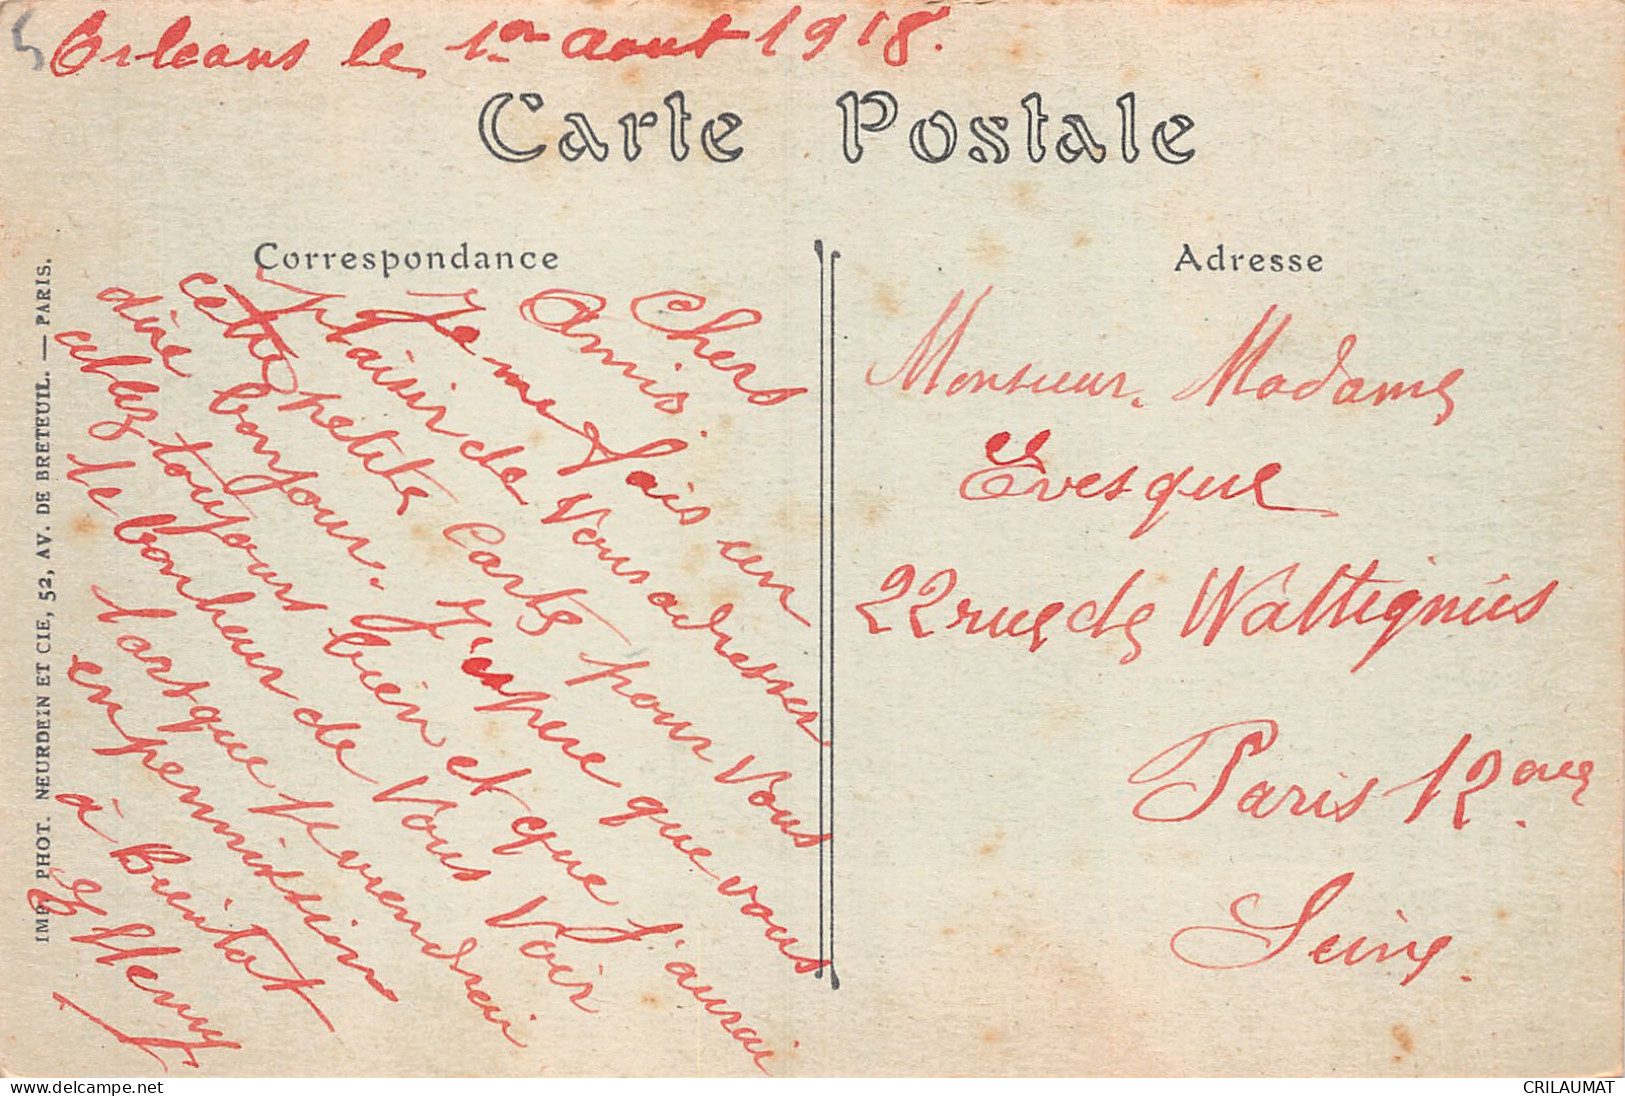 Orleans le 1er aout 1918.
Carte Postale
Correspondance
Adresse
Chers
Amis.
Je me fais un
plaisir de Vous adresser
cette petite Carte pour Vous
dire bonjour. J'espere que vous
allez toujours bien et que j'aurai
le bonheur de Vous Voir
lorsque je viendrai
en permission
à Bientot
Henry
Monsieur. Madame
Evesque
22 rue de Wattignies
Paris 12eme
Seine.
IMP. PHOT. NEURDEIN ET CIE, 52, AV. DE BRETEUIL. — PARIS.
delcampe.net
CRILAUMAT